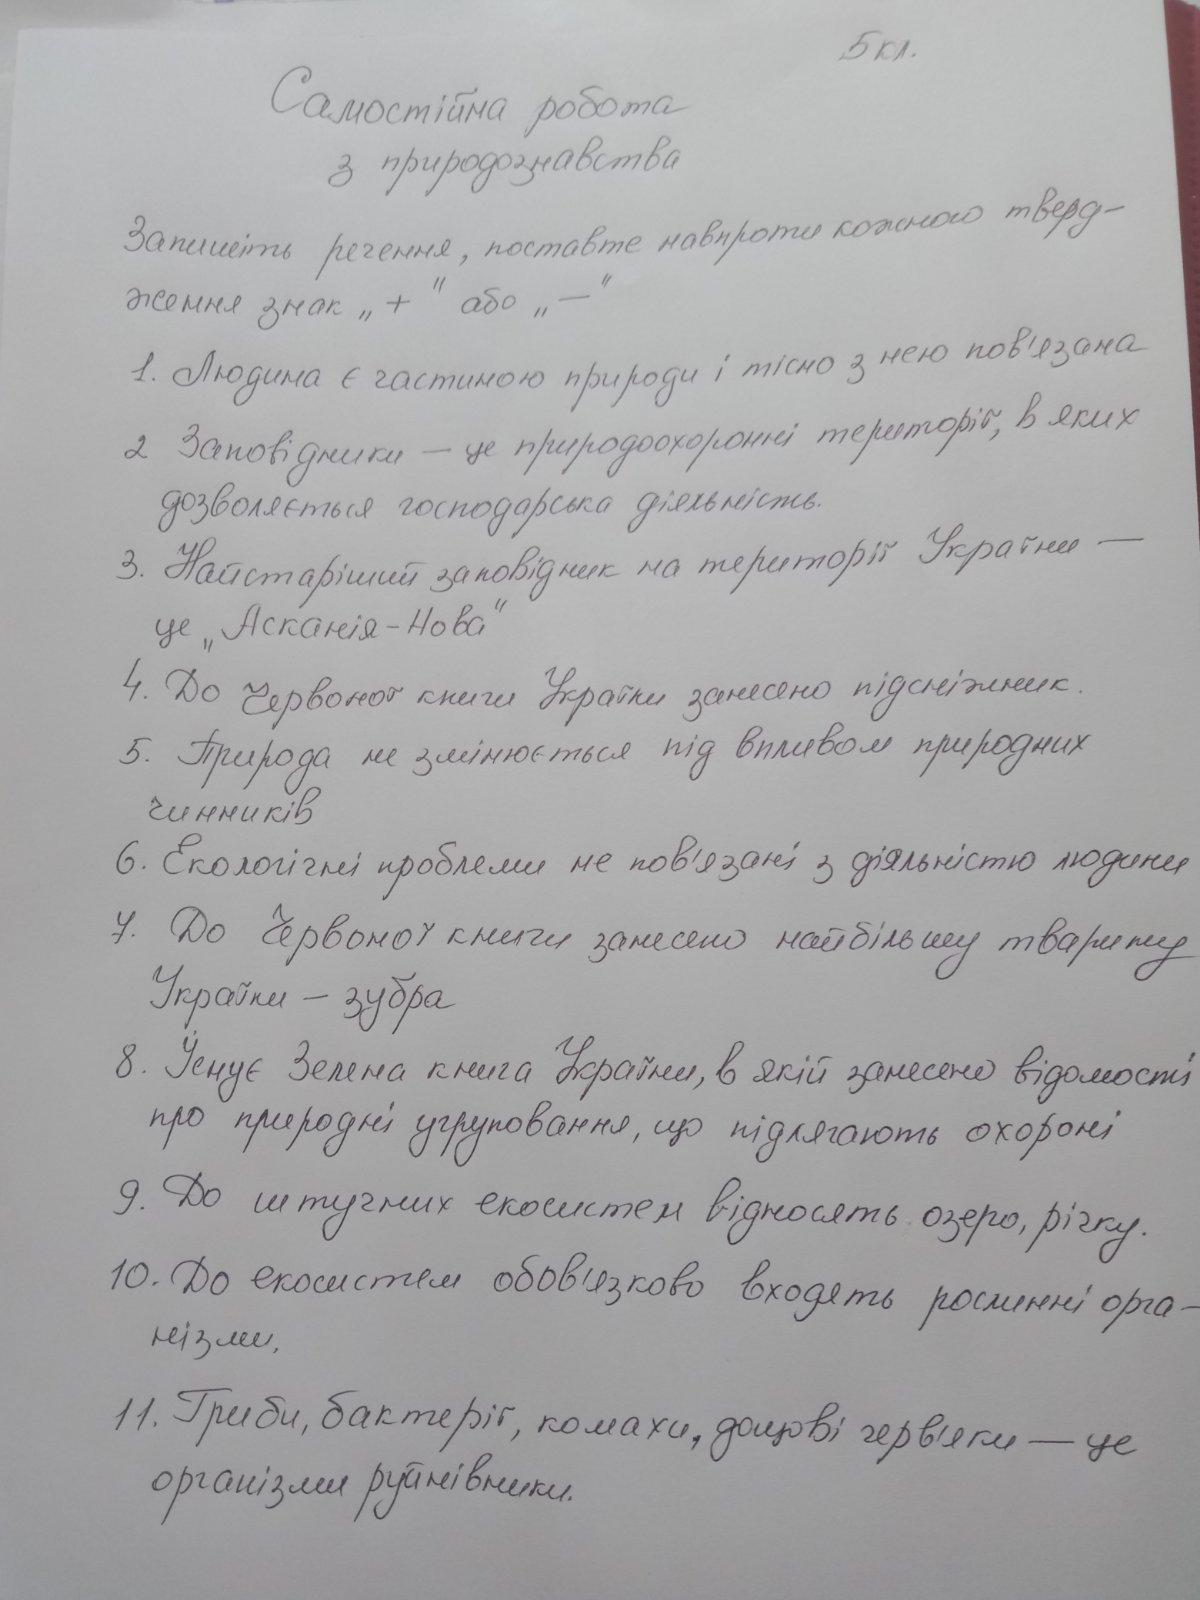 5 кл.
Самостійна робота
з природознавства
Запишіть речення, поставте навпроти кожного тверд-
ження знак „+" або „—"
1. Людина є частиною природи і тісно з нею пов'язана
2 Заповідники — це природоохоронні території, в яких
дозволяється господарська діяльність.
3. Найстаріший заповідник на території України —
це „Асканія-Нова"
4. До Червоної книги України занесено підсніжник.
5. Природа не змінюється під впливом природних
чинників
6. Екологічні проблеми не пов'язані з діяльністю людини
7. До Червоної книги занесено найбільшу тварину
України — зубра
8. Існує Зелена книга України, в якій занесено відомості
про природні угруповання, що підлягають охороні
9. До штучних екосистем відносять озеро, річку.
10. До екосистем обов'язково входять рослинні орга-
нізми.
11. Гриби, бактерії, комахи, дощові черв'яки — це
організми руйнівники.